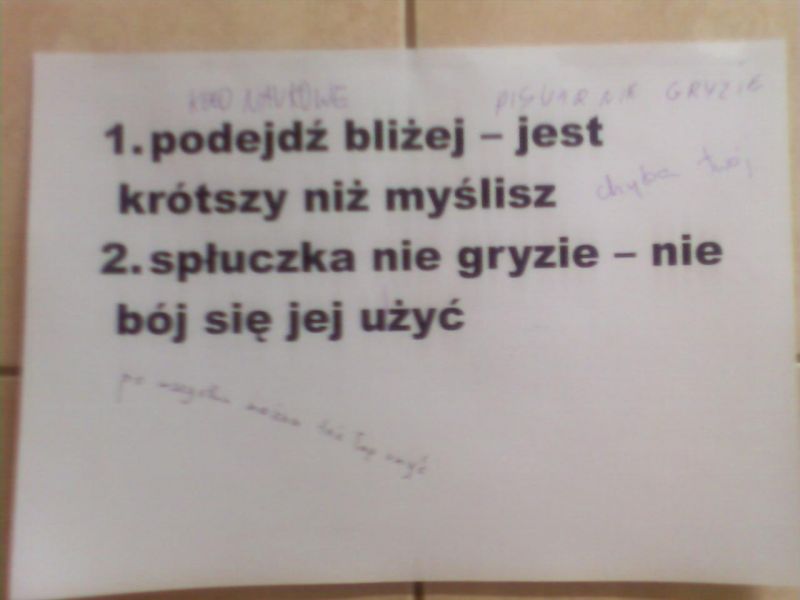 NAUKOWE
NIE GRYZIE
1. podejdź bliżej – jest
krótszy niż myślisz
chyba twój
2. spłuczka nie gryzie – nie
bój się jej użyć
po wszystkim można też łapy umyć